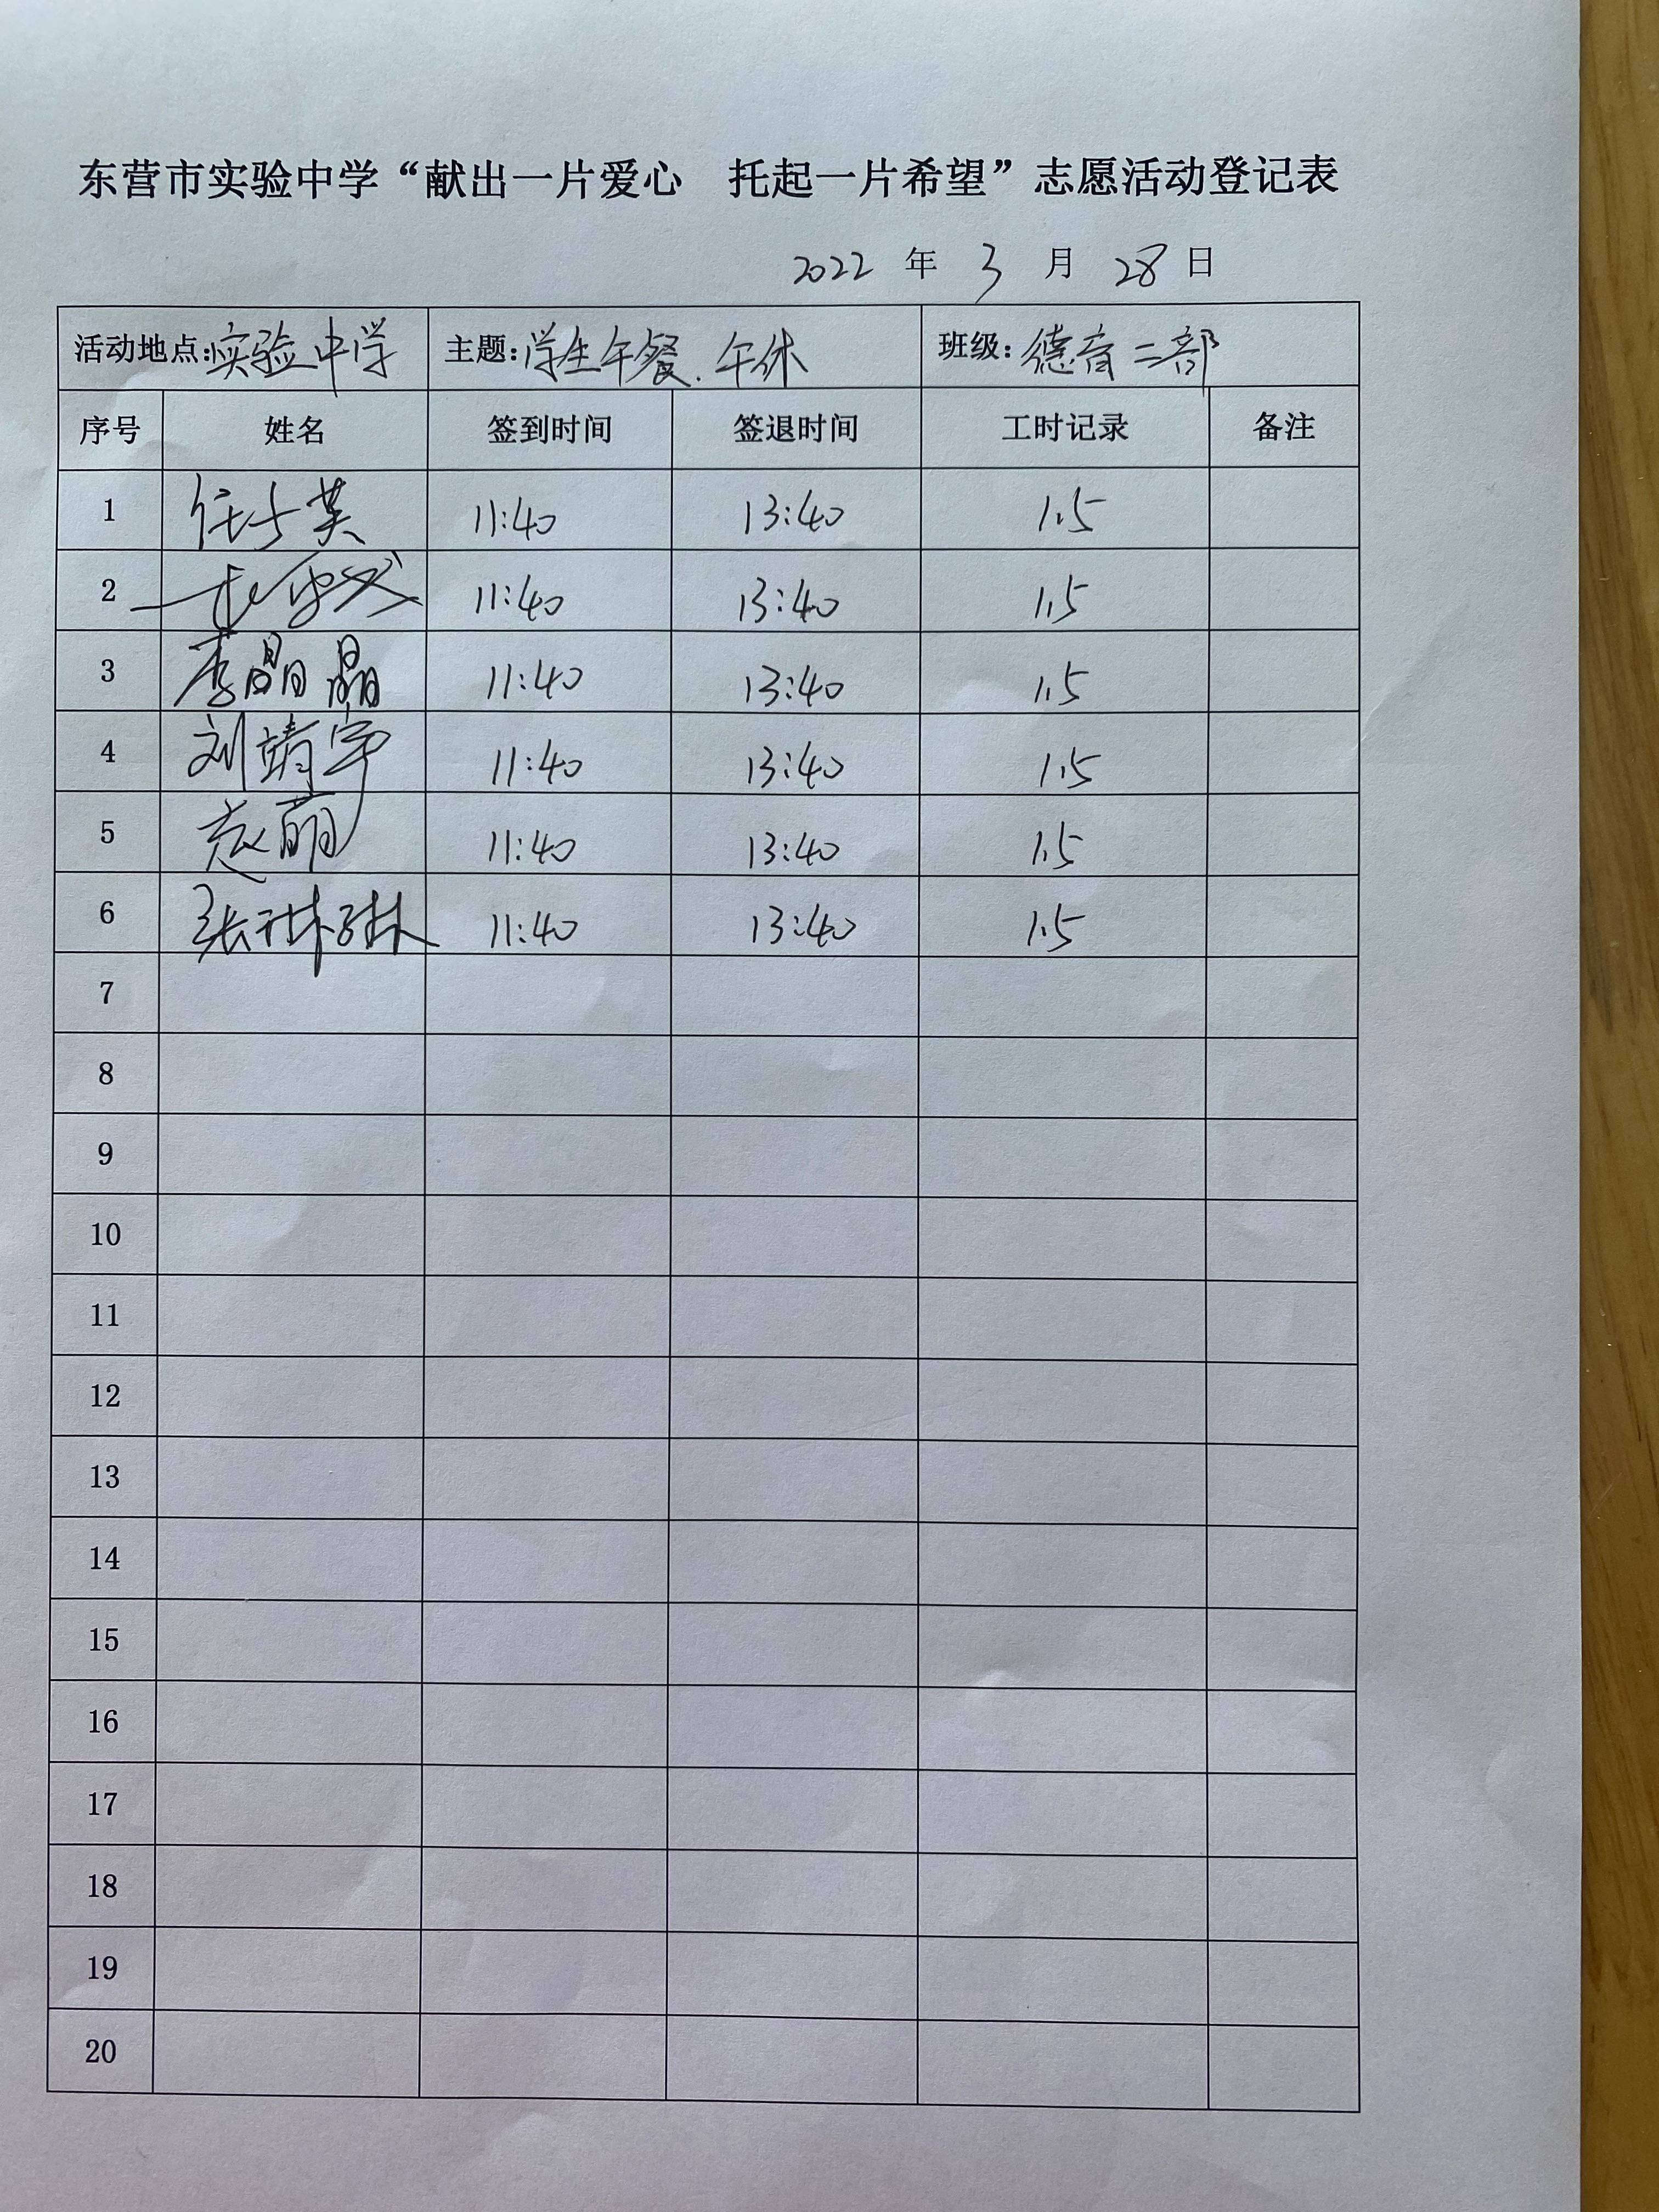 东营市实验中学“献出一片爱心 托起一片希望”志愿活动登记表
2022 年 3 月 28 日
活动地点:实验中学 主题:学生午餐、午休 班级:德育二部
序号 姓名 签到时间 签退时间 工时记录 备注
1 任英 11:40 13:40 1.5
2 11:40 13:40 1.5
3 李晶晶 11:40 13:40 1.5
4 刘靖宇 11:40 13:40 1.5
5 萌 11:40 13:40 1.5
6 张琳琳 11:40 13:40 1.5
7
8
9
10
11
12
13
14
15
16
17
18
19
20